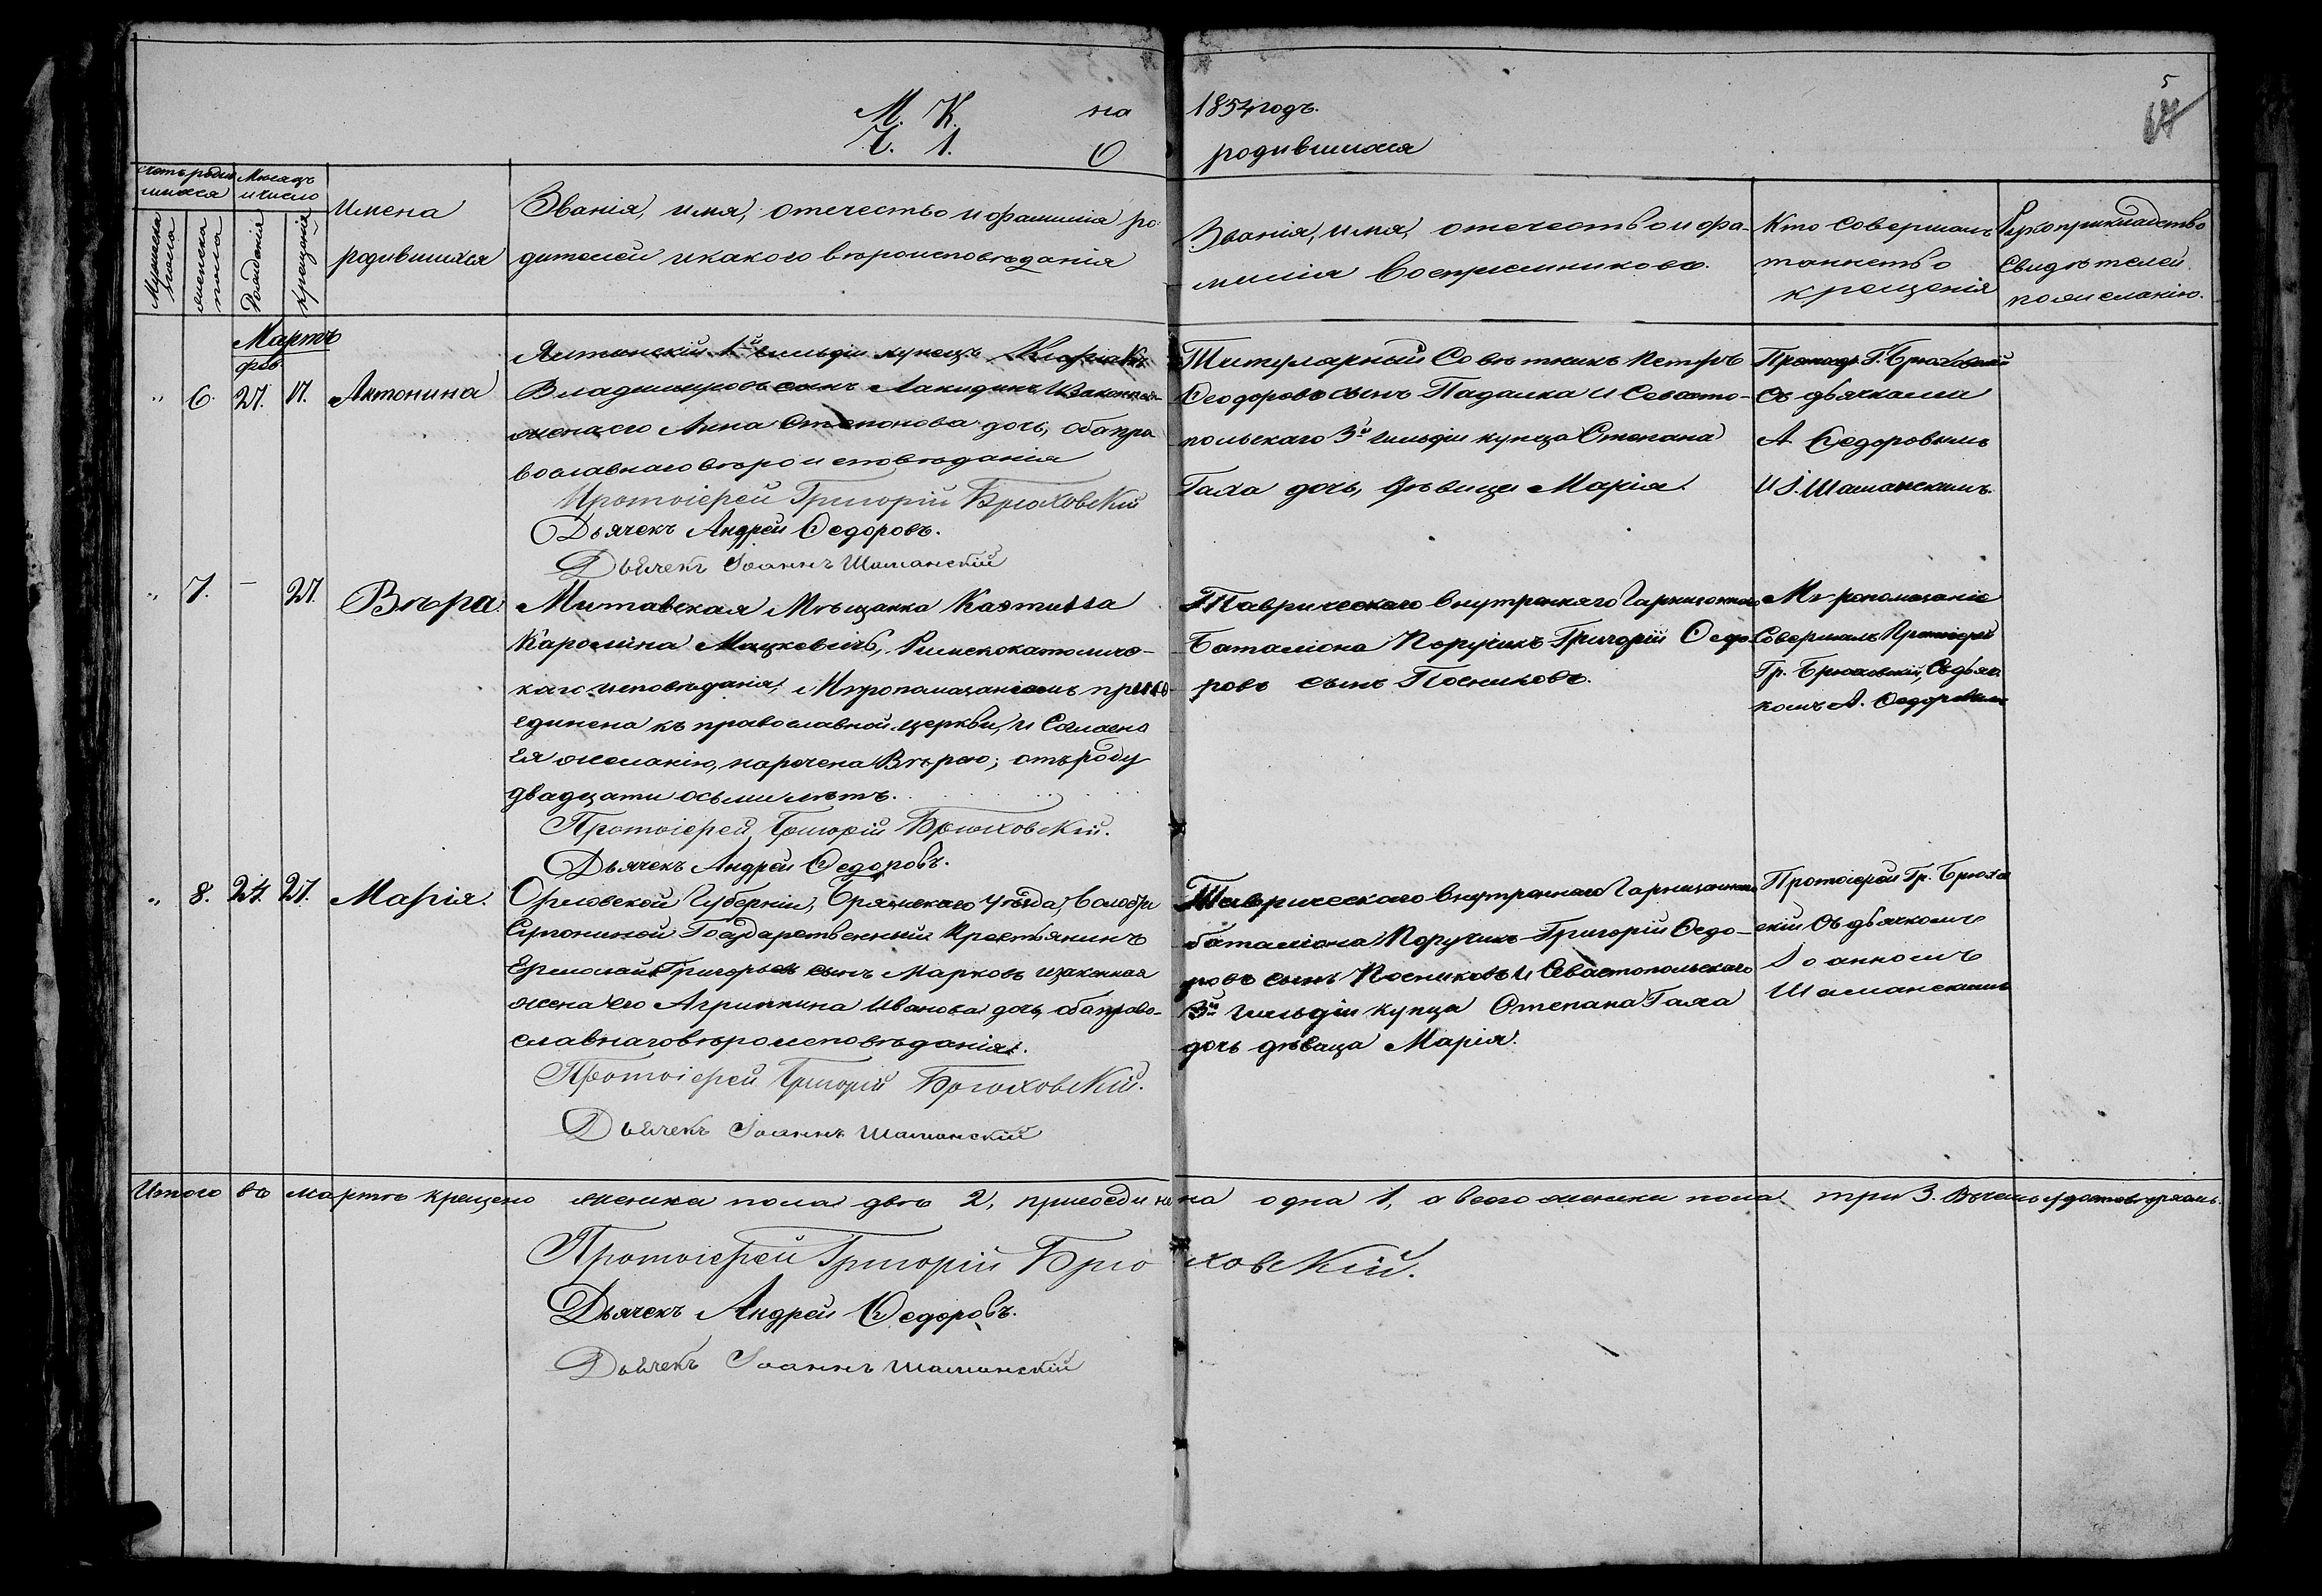 М. К. на 1854 годъ.
Ч. 1. О родившихся
5
Счетъ родившихся
Мѣсяцъ и число
Мужеска пола
женска пола
Рожденія
Крещенія
Имена
родившихся
Званія, имя, отечество и фамилія ро-
дителей и какого вѣроисповѣданія
Званія, имя, отечество и фа-
милія Воспріемниковъ.
Кто совершалъ
таинство
крещенія
Рукоприкладство
свидѣтелей
по желанію.
Мартъ
фев.
" 6. 27. 17. Антонина
Ялтинскій 1й гильдіи купецъ
Владиміровъ сынъ Лакидинъ и законная
жена его Анна Степанова дочь, оба пра
вославнаго вѣроисповѣданія
Протоіерей Григорій Брюховскій
Дьячекъ Андрей Ѳедоровъ.
Дьячекъ Іоаннъ Шаманскій
Титулярный Совѣтникъ Петръ
Ѳеодоровъ сынъ Падалка и Севасто-
польскаго 3й гильдіи купца Степана
Гаха дочь, дѣвица Марія.
Протоіер. Г. Брюховскій
съ дьячками
А Ѳедоровымъ
и І. Шаманскимъ.
" 7. — 27. Вѣра
Митавская Мѣщанка
Каролина Мацкевичъ, Римскокатоличе-
каго исповѣданія, Мѵропомазаніемъ присо-
единена къ православной церкви, и согласно
ея желанію, наречена Вѣрою; отъ роду
двадцати осьми лѣтъ.
Протоіерей Григорій Брюховскій.
Дьячекъ Андрей Ѳедоровъ.
Таврическаго внутренняго Гарнизоннаго
Баталіона Поручикъ Григорій Ѳедо
ровъ сынъ Посниковъ.
Мѵропомазаніе
совершалъ Протоіерей
Гр. Брюховскій, съ дьяч
комъ А. Ѳедоровымъ
" 8. 24. 27. Марія.
Орловской Губерніи, Брянскаго уѣзда, волости
Супониной Государственный Крестьянинъ
Ермолай Григорьевъ сынъ Марковъ и законная
жена его Агриппина Иванова дочь, оба право-
славнаго вѣроисповѣданія.
Протоіерей Григорій Брюховскій.
Дьячекъ Іоаннъ Шаманскій
Таврическаго внутренняго Гарнизоннаго
баталіона Поручикъ Григорій Ѳедо-
ровъ сынъ Посниковъ и Севастопольскаго
3й гильдіи купца Степана Гаха
дочь дѣвица Марія.
Протоіерей Гр. Брюхов
скій съ дьячкомъ
Іоанномъ
Шаманскимъ
Итого въ мартѣ крещено женска пола двѣ 2, присоединена одна 1, а всего женска пола три 3. Въ чемъ и удостовѣряемъ.
Протоіерей Григорій Брюховскій.
Дьячекъ Андрей Ѳедоровъ.
Дьячекъ Іоаннъ Шаманскій